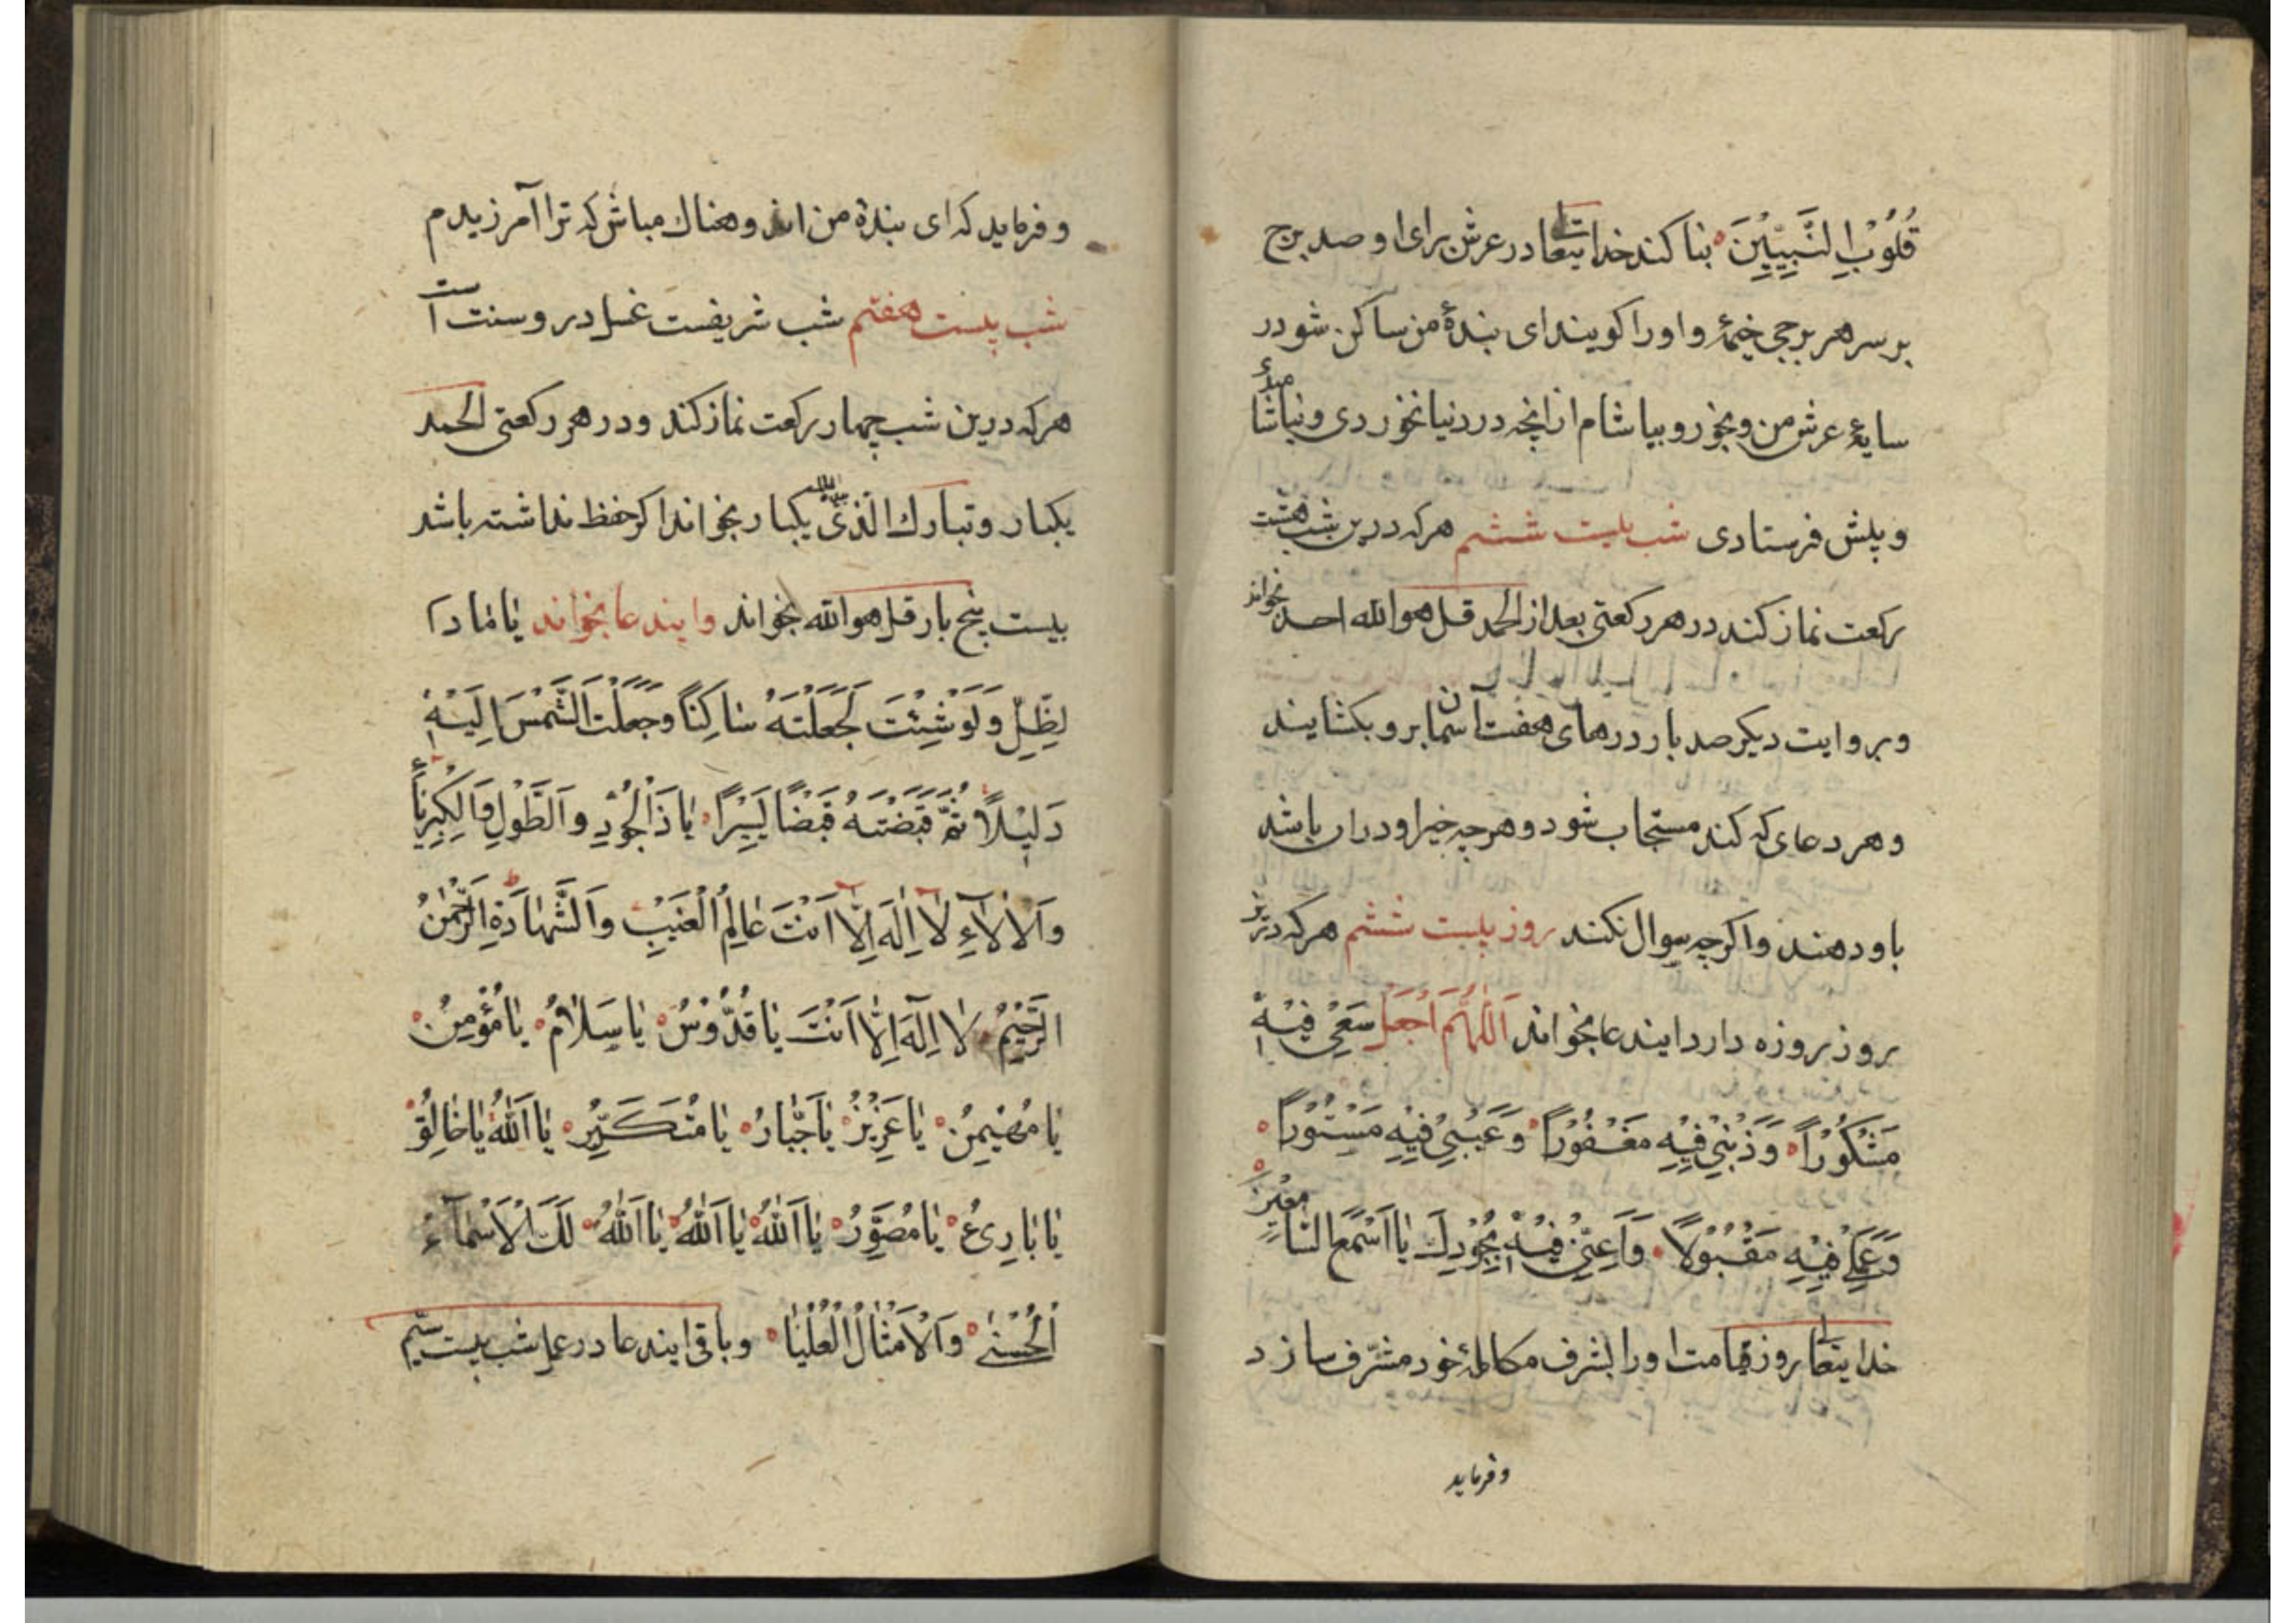 قُلُوْبِ النَّبِيِّيْنَ بنا کند خدایتعالی در عرش برای او صد برج
بر سر هر برجی خیمۀ و اورا کویند ای بندۀ من ساکن شو در
سایۀ عرش من و بخور و بیاشام ازانچه در دنیا نخوردی و نیاشامیدی
و پیش فرستادی شب بیست ششم هر که درین شب هشت
رکعت نماز کند در هر رکعتی بعد از الحمد قل هو الله احد بخواند
و بروایت دیکر صد بار درهای هفت آسمان برو بکشایند
و هر دعای که کند مستجاب شود و هر چه خیر او دران باشد
باو دهند و اکرچه سوال نکند روز بیست ششم هر که درین
روز بروزه دارد ایندعا بخواند اَللّٰهُمَّ اجْعَلْ سَعْیِ فِیْهِ
مَشْکُوْرًا وَ ذَنْبِیْ فِیْهِ مَغْفُوْرًا وَ عَیْبِیْ فِیْهِ مَسْتُوْرًا
وَ عَمَلِیْ فِیْهِ مَقْبُوْلًا وَ اَعِنِّیْ فِیْهِ بِجُوْدِكَ یٰا اَسْمَعَ السّٰامِعِیْنَ
خدایتعالی روز قیامت اورا بشرف مکالمۀ خود مشرّف سازد
وفرماید
و فرماید که ای بندۀ من اندوهناك مباش که ترا آمرزیدم
شب بیست هفتم شب شریفست غسل درو سنت است
هر که درین شب چهار رکعت نماز کند و در هر رکعتی الحمد
یکبار و تبارك الّذی یکبار بخواند اکر حفظ نداشته باشد
بیست پنج بار قل هو الله بخواند و ایندعا بخواند یٰا مٰادَّ ا
لظِّلِّ وَ لَوْ شِئْتَ لَجَعَلْتَهُ سٰاکِنًا وَ جَعَلْتَ الشَّمْسَ اِلَیْهِ
دَلِیْلًا ثُمَّ قَبَضْتَهُ قَبْضًا یَسِیْرًا یٰا ذَا الْجُوْدِ وَ الطَّوْلِ وَ الْکِبْرِیٰاءِ
وَ الْاٰلٰاءِ لٰا اِلٰهَ اِلّٰا اَنْتَ عٰالِمُ الْغَیْبِ وَ الشَّهٰادَةِ الرَّحْمٰنُ
الرَّحِیْمُ لٰا اِلٰهَ اِلّٰا اَنْتَ یٰا قُدُّوْسُ یٰا سَلٰامُ یٰا مُؤْمِنُ
یٰا مُهَیْمِنُ یٰا عَزِیْزُ یٰا جَبّٰارُ یٰا مُتَکَبِّرُ یٰا اَللهُ یٰا خٰالِقُ
یٰا بٰارِئُ یٰا مُصَوِّرُ یٰا اَللهُ یٰا اَللهُ یٰا اَللهُ لَكَ الْاَسْمٰآءُ
الْحُسْنٰی وَ الْاَمْثٰالُ الْعُلْیٰا و باقی ایندعا در عمل شب بیست سیّم